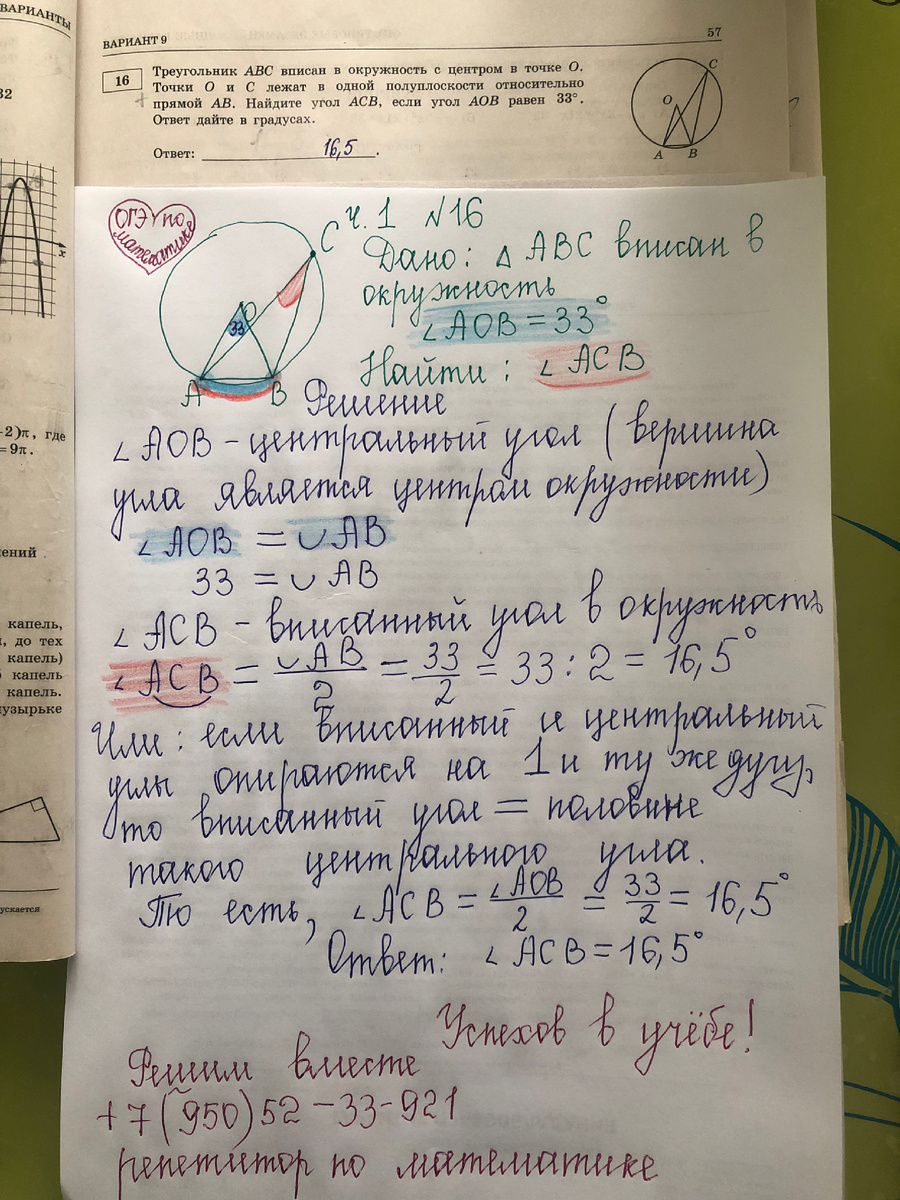 ВАРИАНТЫ
ВАРИАНТ 9
57
32
16
Треугольник ABC вписан в окружность с центром в точке O.
Точки O и C лежат в одной полуплоскости относительно
прямой AB. Найдите угол ACB, если угол AOB равен 33°.
Ответ дайте в градусах.
Ответ: 16,5.
C
O
A B
x
-2)π, где
=9π.
ений
капель,
, до тех
капель)
капель
капель.
узырьке
ускается
ОГЭ по
математике
ч. 1 №16
Дано: △ ABC вписан в
окружность
∠AOB = 33°
Найти: ∠ ACB
C
O
33
A B
Решение
∠ AOB - центральный угол (вершина
угла является центром окружности)
∠ AOB = ∪ AB
33 = ∪ AB
∠ ACB - вписанный угол в окружность
∠ ACB = ∪AB/2 = 33/2 = 33 : 2 = 16,5°
Или: если вписанный и центральный
углы опираются на 1 и ту же дугу,
то вписанный угол = половине
такого центрального угла.
То есть, ∠ ACB = ∠AOB/2 = 33/2 = 16,5°
Ответ: ∠ ACB = 16,5°
Успехов в учёбе!
Решим вместе
+7(950)52-33-921
репетитор по математике